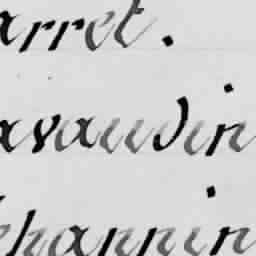 arret.
avaudin
ehannin